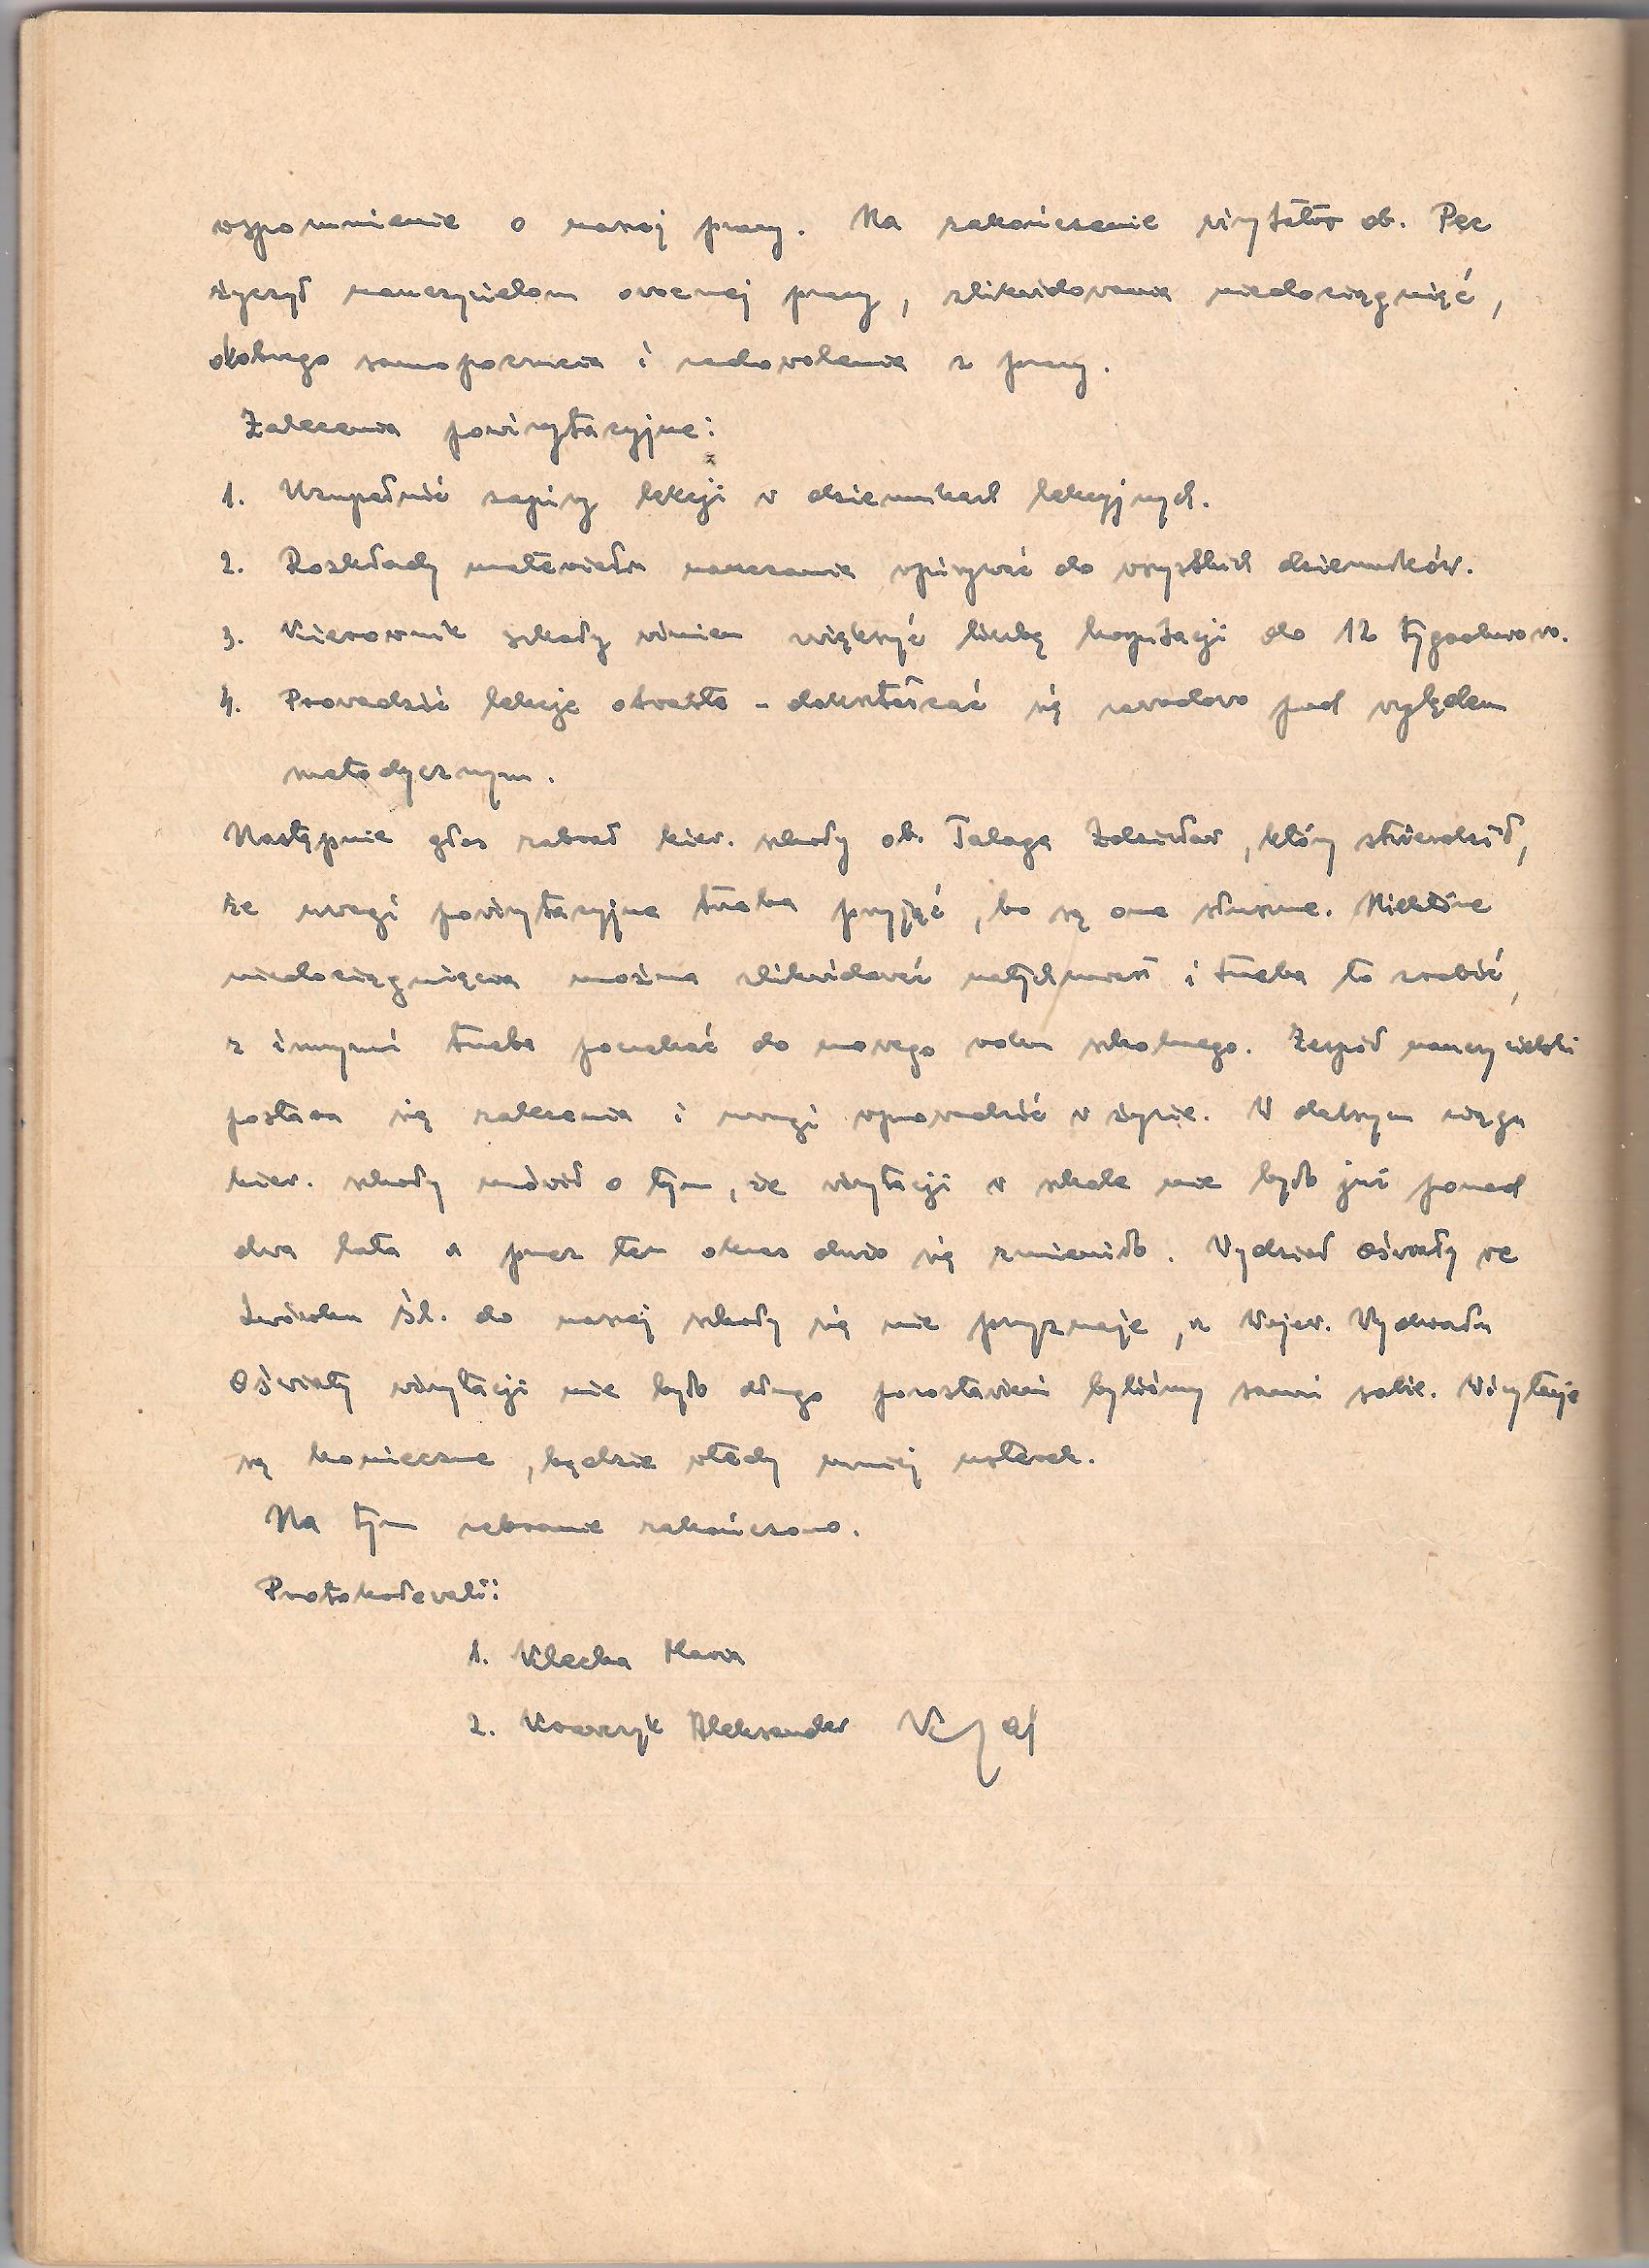 wspomnienie o naszej pracy. Na zakończenie wizytator ob. Pęc
życzył nauczycielom owocnej pracy, zlikwidowania niedociągnięć,
dobrego samopoczucia i zadowolenia z pracy.
Zalecenia powizytacyjne:
1. Uzupełnić zapisy lekcji w dziennikach lekcyjnych.
2. Rozkłady materiału nauczania wpisywać do wszystkich dzienników.
3. Kierownik szkoły winien zwiększyć liczbę hospitacji do 12 tygodniowo.
4. Prowadzić lekcje otwarte - dokształcać się zawodowo pod względem
metodycznym.
Następnie głos zabrał kier. szkoły ob. Talaga Zdzisław, który stwierdził,
że uwagi powizytacyjne trzeba przyjąć, bo są one słuszne. Niektóre
niedociągnięcia można zlikwidować natychmiast i trzeba to zrobić,
z innymi trzeba poczekać do nowego roku szkolnego. Zespół nauczycielski
postara się zalecenia i uwagi wprowadzić w życie. W dalszym ciągu
kier. szkoły mówił o tym, że wizytacji w szkole nie było już ponad
dwa lata a przez ten okres dużo się zmieniło. Wydział Oświaty we
Lwówku Śl. do naszej szkoły się nie przyznaje, z Wojew. Wydziału
Oświaty wizytacji nie było długo pozostawieni byliśmy sami sobie. Wizytacje
są konieczne, będzie wtedy mniej usterek.
Na tym zebranie zakończono.
Protokołowali:
1. Klecha Maria
2. Krawczyk Aleksander